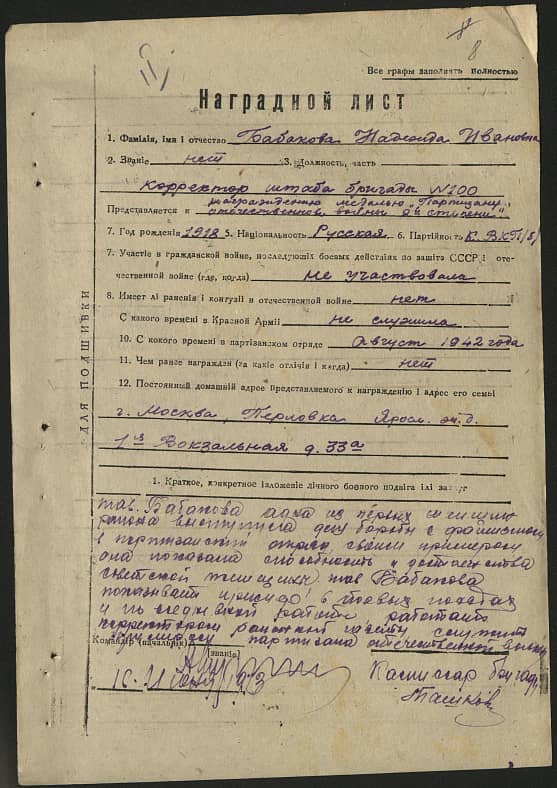 8
Все графы заполнять полностью
Наградной лист
1. Фамілія, імя і отчество Бабакова Надежда Ивановна
2. Званіе нет 3. Должность, часть
корректор штаба бригады №100
награждению медалью "Партизану
Представляется к отечественной войны 2й степени"
7. Год рожденія 1918 5. Національность Русская 6. Партійность К. ВКП/б/
7. Участіе в гражданской войне, последующіх боевых действіях по защіте СССР і оте-
чественной войне (где, когда) не участвовала
8. Имеет лі раненія і контузіі в отечественной войне нет
С какого времені в Красной Арміі не служила
10. С какого времені в партізанском отряде август 1942 года
11. Чем ранее награжден (за какіе отлічія і когда) нет
12. Постоянный домашній адрес представляемого к награжденію і адрес его семьі
г. Москва, Перловка Яросл. ж.д.
1я Вокзальная д. 33а
ДЛЯ ПОДШИВКИ
1. Краткое, конкретное ізложеніе лічного боевого подвіга ілі заслуг
тов. Бабакова одна из первых женщин
района вступила для борьбы с фашизмом
в партизанский отряд своим примером
она показала способность и достоинства
советской женщины тов Бабакова
показывает пример в боевых походах
и работает
корректором районной газеты служит
партизана отечественной войны
Командір (начальнік)
званіе
16 Июня 1943
Комиссар бригады